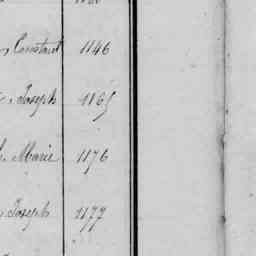 Constant 1146
Joseph 1165
Marie 1176
Joseph 1177